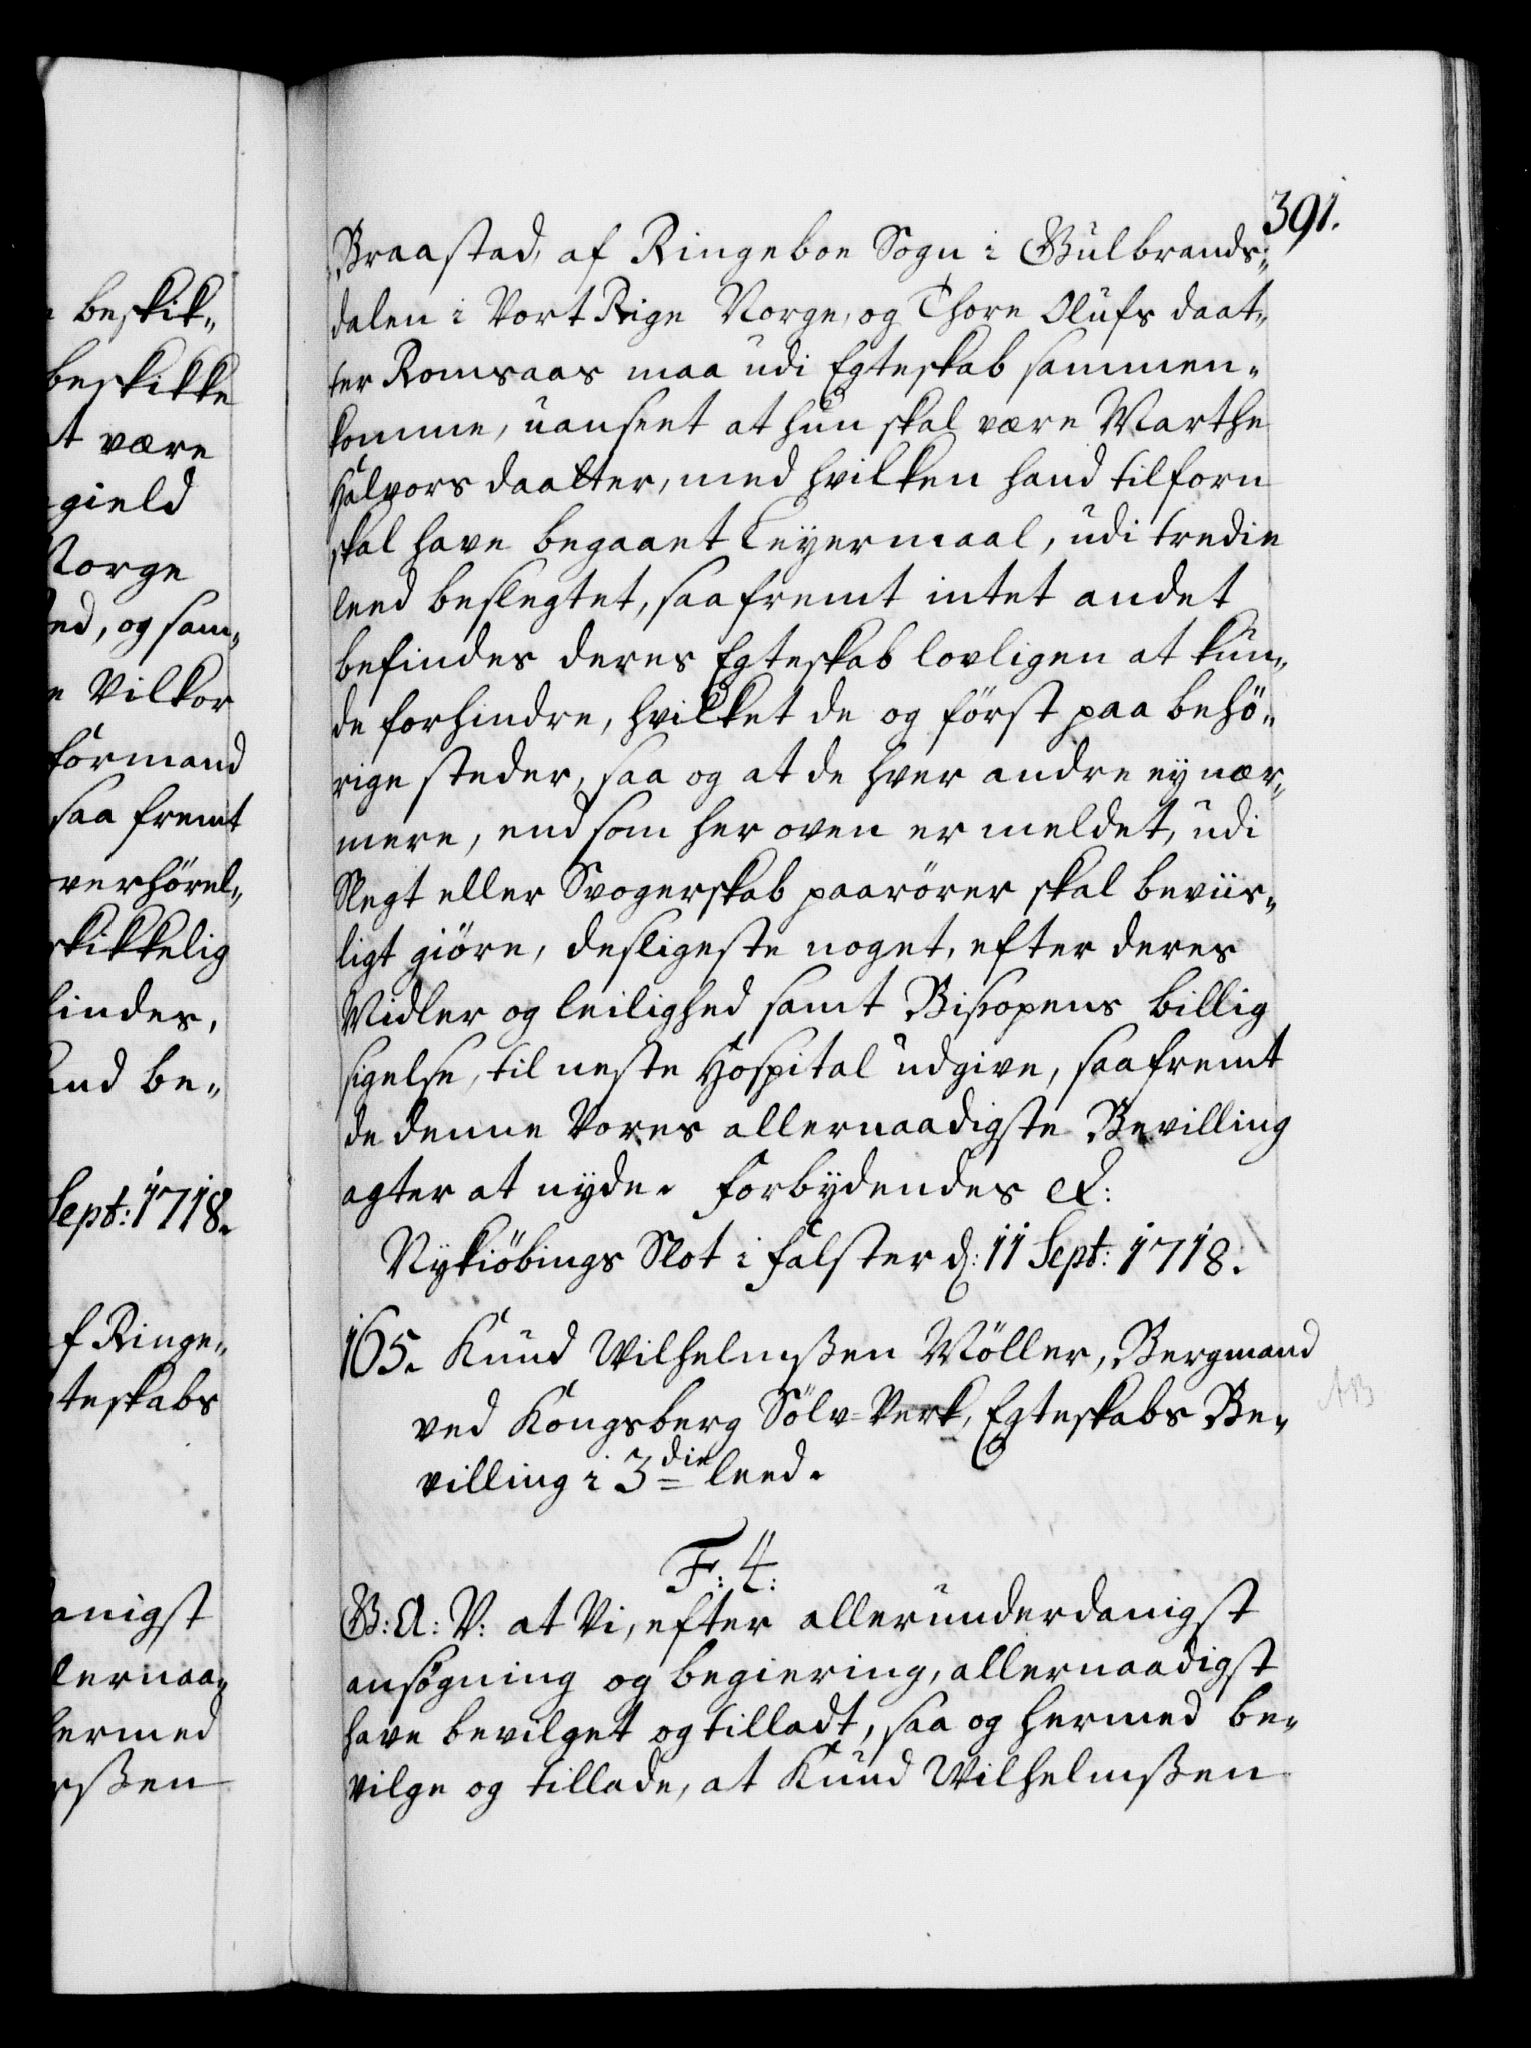 391.
Braastad, af Ringeboe Sogn i Gulbrands-
dalen i Vort Rige Norge, og Thore Olufs daat-
ter Romsaas maa udi Egteskab sammen-
komme, uanseet at hun skal være Marthe
Halvors daatter, med hvilken hand tilforn
skal have begaaet Leyermaal, udi tredie
leed beslegtet, saafremt intet andet
befindes deres Egteskab lovligen at kun-
de forhindre, hvilket de og først paa behö-
rige steder, saa og at de hver andre ey nær-
mere, end som her oven er meldet, udi
Slegt eller Svogerskab paarörer skal beviis-
ligt giöre, desligeste noget, efter deres
Midler og leilighed samt Bispens billig
sigelse, til neste Hospital udgive, saafremt
de denne Vores allernaadigste Bevilling
agter at nyde. Forbydendes et:
Nykiöbings Slot i Falster d: 11 Sept: 1718.
165. Knud Wilhelmßen Möller, Bergmand
ved Kongsberg Sölv-Verk, Egteskabs Be-
villing i 3die leed.
F: 4:
G: A: V: at Vi, efter allerunderdanigst
ansøgning og begiering, allernaadigst
have bevilget og tilladt, saa og hermed be-
vilge og tillade, at Knud Wilhelmßen
beskik-
beskikke
t være
gield
Norge
ed, og sam-
e Vilkor
Formand
saa fremt
verhörel-
skikkelig
findes,
and be-
Sept: 1718.
f Ringe-
teskabs
anigst
lernaa-
hermed
rßen